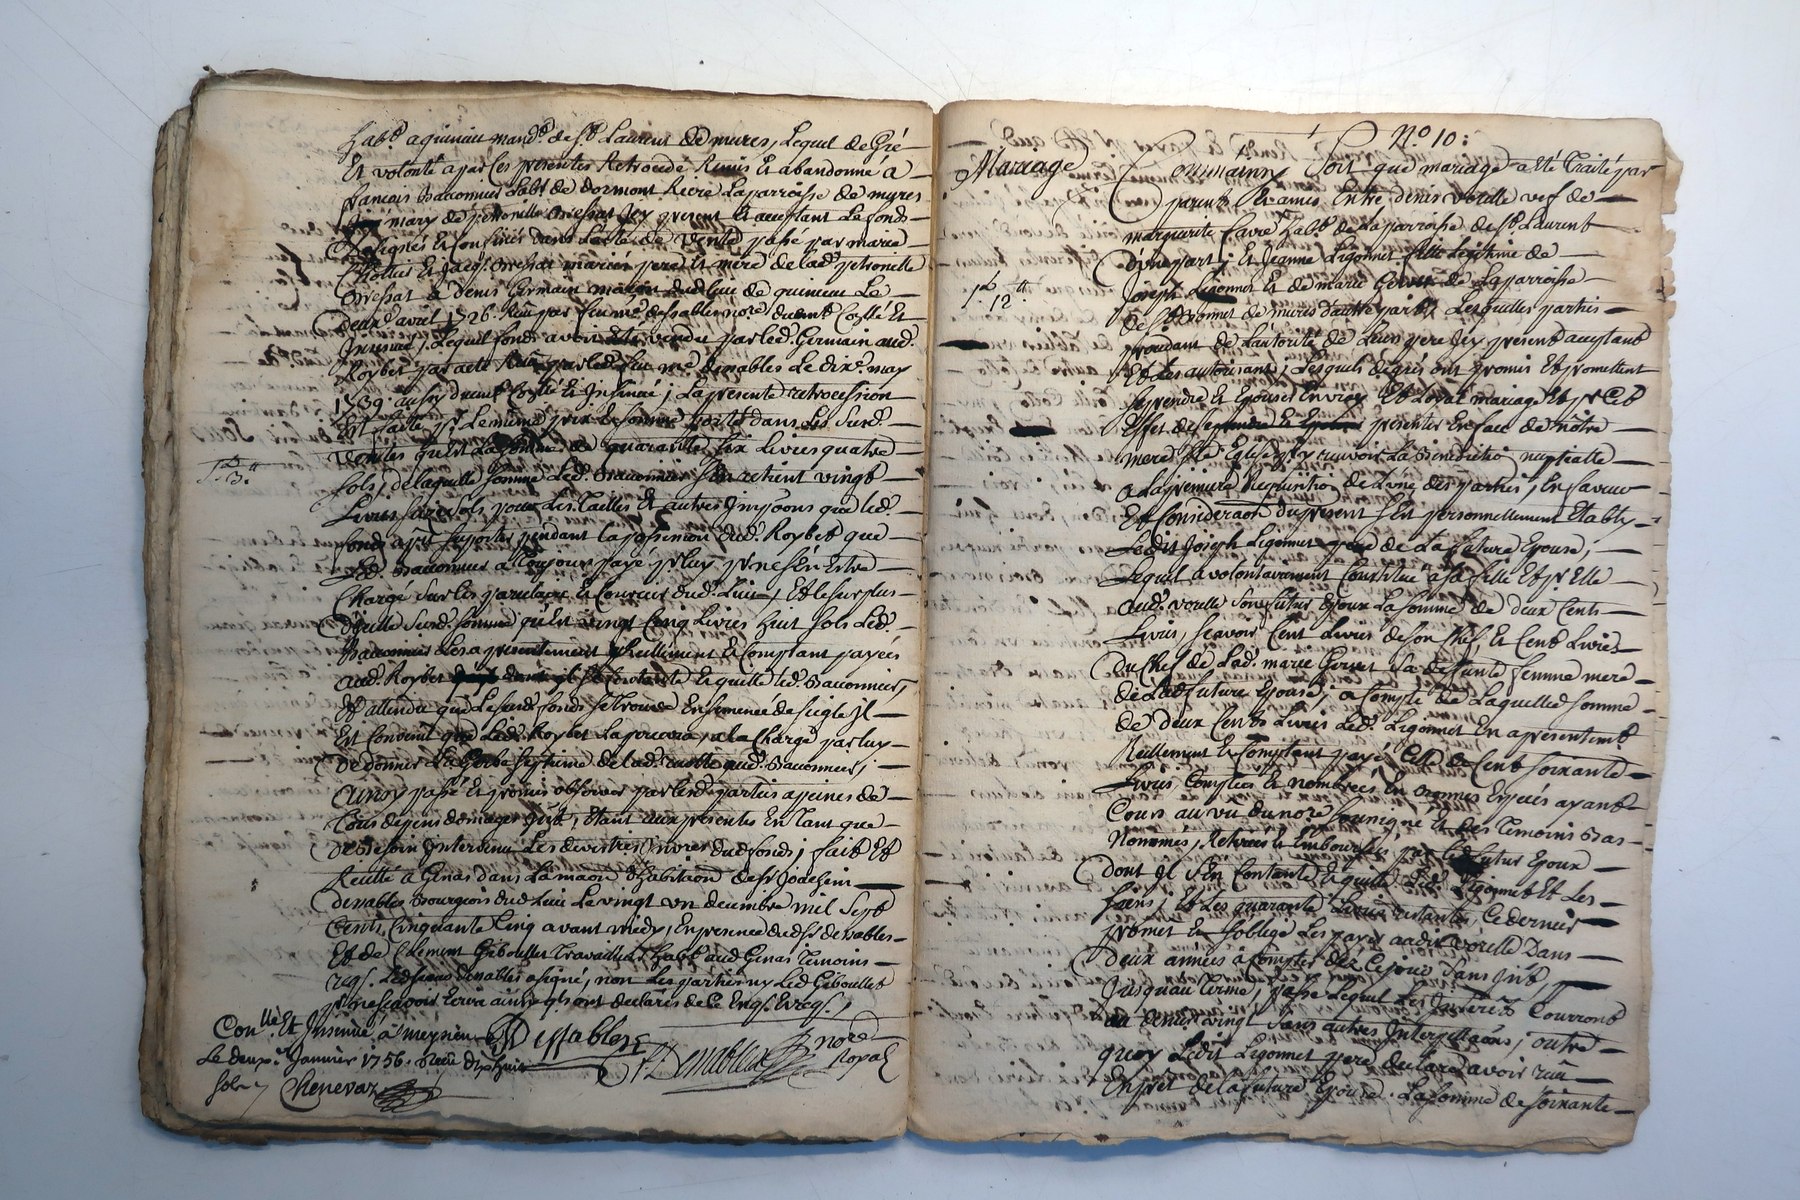 hab.t a quinieu mand.t de S.t Laurent de mures, Lequel de Gré
Et volonté a par Ces presentes Retrocedé Remis Et abandonné à
francois Bauonnier hab.t de dormont Riere La parroisse de mures
mary de petronille Bressat Icy present Et acceptant Le fonds
désigné Et Confiné dans L'acte de Vente passé par marie
Et Jacq. Bressat mariés pere Et mere de lad. petronille
Bressat à denis Germain dud. Lieu de quinieu Le
deux.e avril 1726. Reçu par feu m.e desablesnore duemt Collé Et
Insinué, Lequel fonds avoit été vendu par led. Germain aud.
Roybet par acte Reçu par led. feu m.e denables Le dix.e may
1739. aussy duem.t Collé Et Insinué; La presente retrocession
Est faitte p.r Le meme prix Et somme porté dans Les Susd.
ventes qu'est La somme de quarante six Livres quatre
sols, de laquelle somme Led. Bauonnier S'en retient vingt
Livres seize sols, pour Les Tailles Et autres Impõons que led.
fonds a pu supporter pendant La possession dud. Roybet que
Led. Bauonnier a Toujours payé p.r Luy p.r n'estre
Chargé sur les parcelaire Et Coureurs dud. Lieu, Et Le surplus
d'icelle Susd. somme qu'est vingt Cinq Livres huit sols Led.
Bauonnier Les a presentement Reellement Et Comptant payées
aud. Roybet dont il Se Contente Et quitte led. Bauonnier,
Et attendu que Le susd. fonds se trouve Ensemencé de seigle Il
Est Convenu que Led. Roybet La à la Charge par luy
de donner La Gerbe Septieme de lad. Recolte aud. Bauonnier;
Ainsy passé Et promis observer par lesd. parties a peines de
Tous depens domages Int., Etant aux presentes En Tant que
de Besoin Intervenu Les dud. fonds; fait Et
Recitté à Genas dans La maon d'habitaõn de S.r Joachim
denables Bourgeois dud. Lieu Le vingt un decembre mil Sept
Cents Cinquante Cinq avant midy, En presence dud. S.r denables
Et de Clement Giboullet Travailleur hab.t aud. Genas Temoins
req.s Led. sieur denables a signé, non Les parties ny Led. Giboullet
p.r ne sçavoir Ecrire ainsy qu'ils ont declarés de Ce Enq.s Et req.s
Con.llé Et Insinué à meyzieu
Le deux.e Janvier 1756. Reçu dix huit
sols Chenevaz
Denables
P. Denables nore Royal
N.o 10:
Mariage
Comme ainsy Soit que mariage a été Traité par
parents Et amis Entre denis vorelle vef de
marguerite favre hab.t de La parroisse de S.t Laurent
d'une part; Et Jeanne Ligonnet fille Legitime de
Joseph Ligonnet Et de marie Gervet de La parroisse
de S.t Bonnet de mures d'autre part; Lesquelles parties
procedant de L'autorité de Leurs pere Icy present acceptant
Et Les autorisant; Lesquels de gré ont promis Et promettent
se prendre Et Epouser En vray Et Loyal mariage Et p.r Cet
Effet de presenter En face de nôtre
mere S.te Eglise p.r y recevoir La Benediction nuptialle
a La premiere Requisition de L'une des parties; En faveur
Et Consideraõn du present S'est personnellement Etably
Ledit Joseph Ligonnet pere de La future Epouse;
Lequel a volontairement Constitué à sa fille Et p.r Elle
aud. vorelle son futur Epoux La somme de deux Cents
Livres, sçavoir Cent Livres de son chef, Et Cent Livres
du Chef de Lad. marie Gervet sa deffunte femme mere
de Lad. future Epouse; a Compte de Laquelle somme
de deux Cents Livres Led. Ligonnet En a presentem.t
Reellement Et Comptant payé Celle de Cent soixante
Livres, Comptées Et Nombrées En Bonnes Especes ayant
Cours au vu du nore soussigné Et des Temoins Bas
Nommés, Retirées Et Emboursées par led. futur Epoux
dont Il S'en Contante Et quitte Led. Ligonnet Et Les
siens; Et Les quarante Livres restantes, Ce dernier
promet Et s'oblige Les payer audit vorelle Dans
deux années à Compter dez Ce jour Sans Int.,
Jusqu'au Terme, passé Lequel Les Interets Courront
au denier vingt Sans autres Interpellaõns; outre
quoy Ledit Ligonnet pere declare avoir reçu
En pret de La future Epouse La somme de soixante